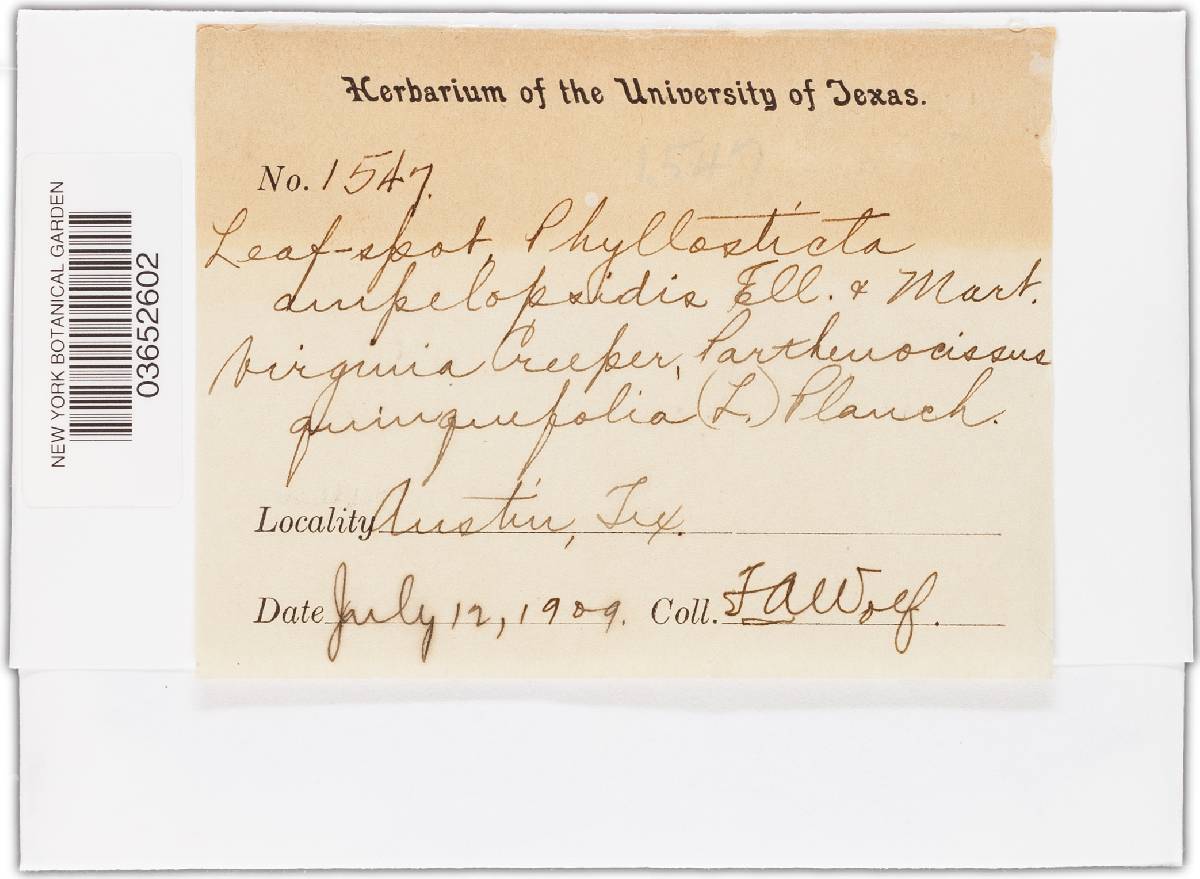 Herbarium of the University of Texas.
No. 1547.
1547
Leaf-spot, Phyllosticta
ampelopsidis Ell. & Mart.
Virginia Creeper, Parthenocissus
quinquefolia (L.) Planch.
Locality Austin, Tex.
Date July 12, 1909. Coll. F A Wolf.
NEW YORK BOTANICAL GARDEN
03652602